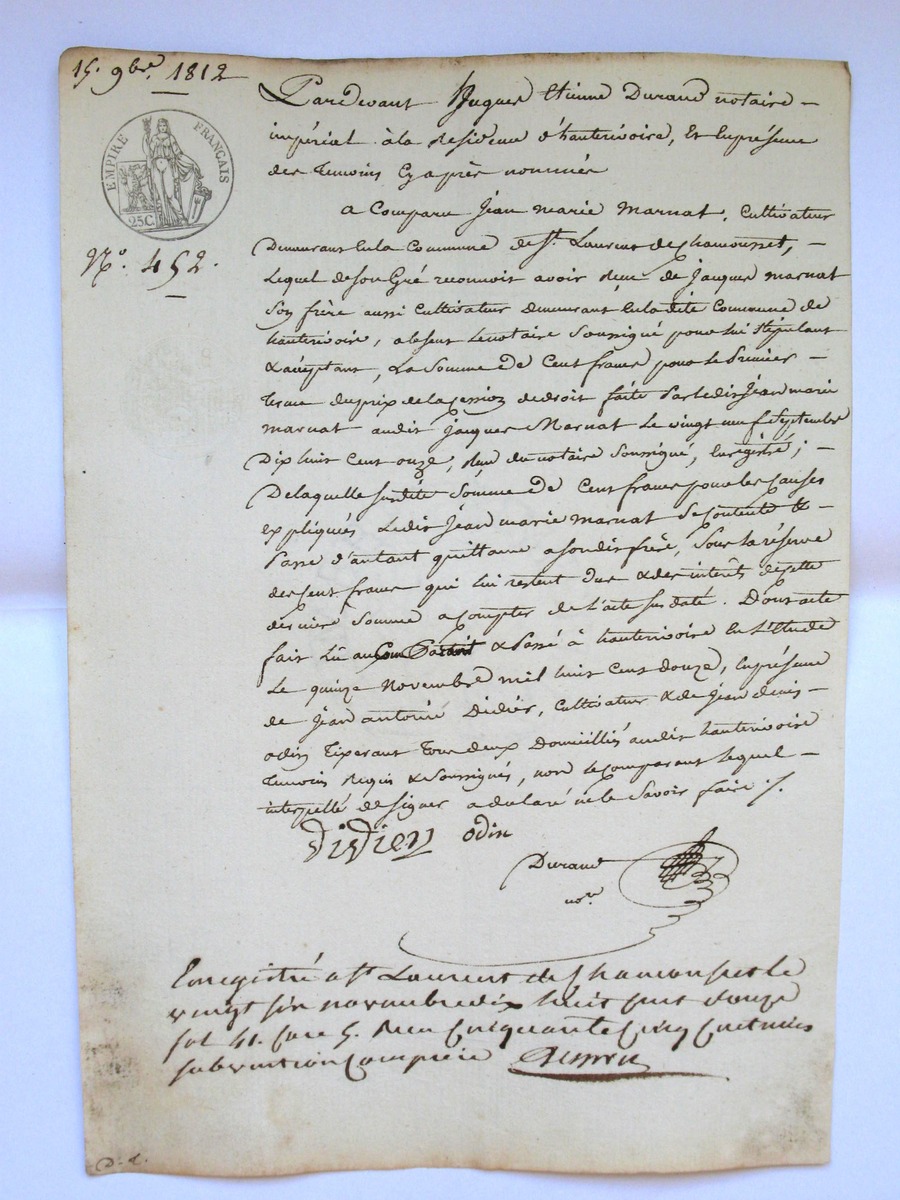 15. 9bre. 1812
EMPIRE FRANÇAIS
25C.
No. 452.
Pardevant Jaques Etienne Durand notaire
impérial à la Residence d'hauterivoire, et En présence
des temoins Cy après nommés
a Comparu Jean marie Marnat, Cultivateur
Demeurant En la Commune de St. Laurent de Chamousset,
Lequel de son Gré reconnoit avoir reçu de Jacques marnat
Son frère aussi Cultivateur demeurant En la dite Commune de
hauterivoire, absent le notaire Soussigné pour lui Stipulant
& acceptant, La Somme de Cent francs pour le Premier
terme du prix de la Cession de droit faite Par le dit Jean marie
marnat audit Jacques Marnat Le vingt neuf Septembre
Dix huit Cent onze, reçu du notaire Soussigné, Enregistré;
De laquelle susdite Somme de Cent francs pour les Causes
expliqués Ledit Jean marie marnat Se Contente &
Passe d'autant quittance a son dit frère, Sous la réserve
des Cent francs qui lui restent dus & des interêts de cette
dernière Somme a Compter de l'acte sus daté. Dont acte
fait Lû au & Passé à hauterivoire En l'Etude
Le quinze Novembre mil huit Cent douze, En présence
de Jean antoine Didier, Cultivateur & de Jean denis
odin Tixerant tous deux Domiciliés audit hauterivoire
temoins Requis & Soussignés, non le Comparant lequel
interpellé de Signer a declaré ne le Savoir faire ./.
Didier odin
Durand
nore.
Enregistré a St Laurent de Chamousset le
vingt six novembre dix huit cent douze
fol 41. Case 5. Reçu Cinquante Cinq Centimes
subvention Comprise
D.L.